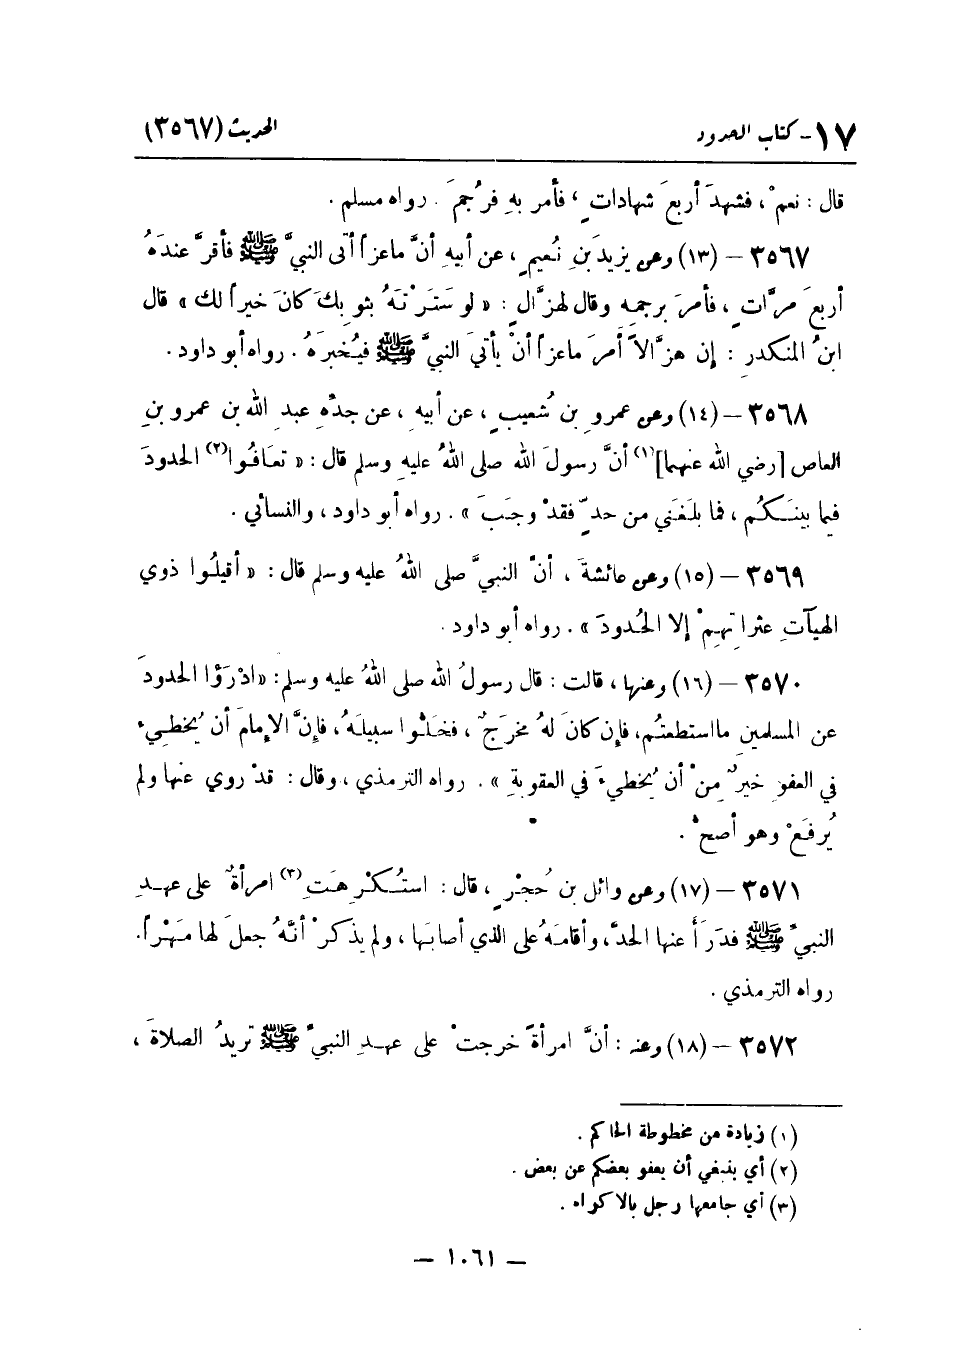 ١٧ - كتاب الحدود الحديث (٣٥٦٧)
قال : نعمْ ، فشهدَ أربعَ شهاداتٍ ، فأمر بهِ فرُجمَ . رواه مسلم .
٣٥٦٧ – (١٣) وعن يزيدَ بنِ نُعيمٍ ، عن أبيهِ أنَّ ماعزاً أتى النبيَّ ﷺ فأقرَّ عندَهُ
أربعَ مرَّاتٍ ، فأمرَ برجمهِ وقال لهزَّالٍ : « لو سَتَرْتَهُ بثوبِكَ كانَ خيراً لك » قال
ابنُ المنكدرِ : إن هزَّالاً أمرَ ماعزاً أنْ يأتيَ النبيَّ ﷺ فيُخبرَهُ . رواه أبو داود .
٣٥٦٨ – (١٤) وعن عمروِ بن شُعيبٍ ، عن أبيه ، عن جدّهِ عبدِ اللهِ بن عمرو بنِ
العاص [رضي الله عنهما](١) أنَّ رسولَ الله صلى اللهُ عليهِ وسلم قال : « تعَافُوا(٢) الحدودَ
فيما بينَكُم ، فما بلغَني من حدٍّ فقدْ وجَبَ » . رواه أبو داود ، والنسائي .
٣٥٦٩ – (١٥) وعن عائشةَ ، أنَّ النبيَّ صلى اللهُ عليه وسلم قال : « أقيلُوا ذوي
الهيآتِ عثراتِهِمْ إلا الحُدودَ » . رواه أبو داود .
٣٥٧٠ – (١٦) وعنها ، قالت : قال رسولُ الله صلى اللهُ عليه وسلم : « ادْرَؤا الحدودَ
عن المسلمينِ ما استطعتُم ، فإن كانَ لهُ مخرجٌ ، فخلُّوا سبيلَهُ ، فإنَّ الإمامَ أن يُخطيءَ
في العفوِ خيرٌ مِنْ أن يُخطيءَ في العقوبةِ » . رواه الترمذي ، وقال : قدْ روي عنها ولم
يُرفَعْ وهو أصحُّ .
٣٥٧١ – (١٧) وعن وائل بن حُجْرٍ ، قال : استُكْرِهَتِ(٣) امرأةٌ على عهدِ
النبيِّ ﷺ فدَرَأَ عنها الحدَّ ، وأقامَهُ على الذي أصابَها ، ولم يذكرْ أنَّهُ جعلَ لها مَهْراً .
رواه الترمذي .
٣٥٧٢ – (١٨) وعنه : أنَّ امرأةً خرجتْ على عهدِ النبيِّ ﷺ تريدُ الصلاةَ ،
(١) زيادة من مخطوطة الحاكم .
(٢) أي ينبغي أن يعفو بعضكم عن بعض .
(٣) أي جامعها رجل بالاكراه .
– ١٠٦١ –